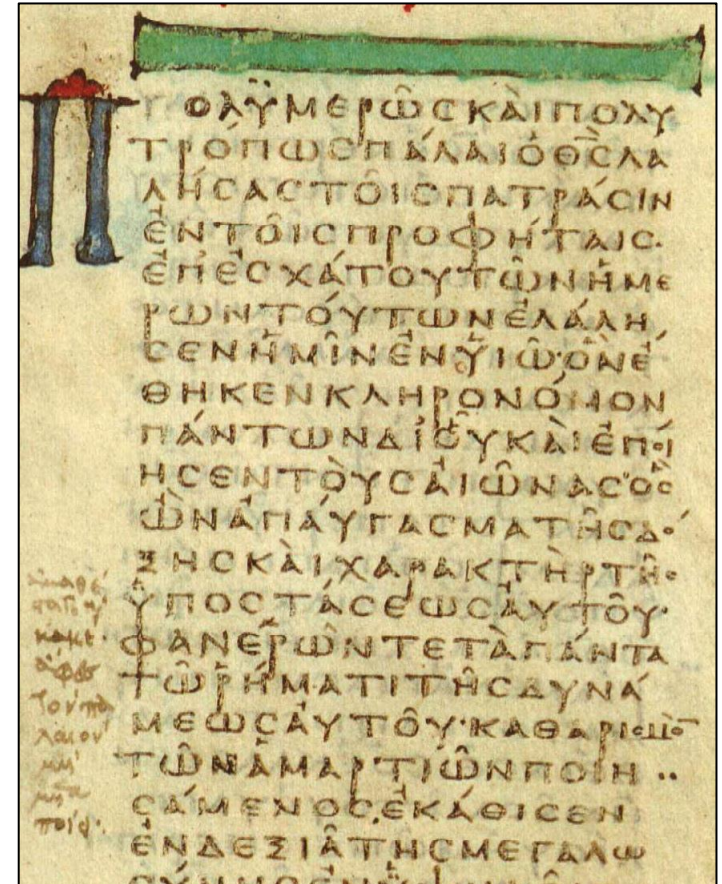 ΠΟΛΥΜΕΡΩϹΚΑΙΠΟΛΥ
ΤΡΟΠΩϹΠΑΛΑΙΟΘϹΛΑ
ΛΗϹΑϹΤΟΙϹΠΑΤΡΑϹΙΝ
ΕΝΤΟΙϹΠΡΟΦΗΤΑΙϹ·
ΕΠΕϹΧΑΤΟΥΤΩΝΗΜΕ
ΡΩΝΤΟΥΤΩΝΕΛΑΛΗ
ϹΕΝΗΜΙΝΕΝΥΙΩ·ΟΝΕ
ΘΗΚΕΝΚΛΗΡΟΝΟΜΟΝ
ΠΑΝΤΩΝΔΙΟΥΚΑΙΕΠΟΙ
ΗϹΕΝΤΟΥϹΑΙΩΝΑϹΟϹ
ΩΝΑΠΑΥΓΑϹΜΑΤΗϹΔΟ
ΞΗϹΚΑΙΧΑΡΑΚΤΗΡΤΗϹ
ΥΠΟϹΤΑϹΕΩϹΑΥΤΟΥ·
ΦΑΝΕΡΩΝΤΕΤΑΠΑΝΤΑ
ΤΩΡΗΜΑΤΙΤΗϹΔΥΝΑ
ΜΕΩϹΑΥΤΟΥ·ΚΑΘΑΡΙϹΜΟ̅
ΤΩΝΑΜΑΡΤΙΩΝΠΟΙΗ
ϹΑΜΕΝΟϹ,ΕΚΑΘΙϹΕΝ
ΕΝΔΕΞΙΑΤΗϹΜΕΓΑΛΩ
ἀμαθέ
κακέ·
ἄφες
τὸν πα
λαιόν
μὴ